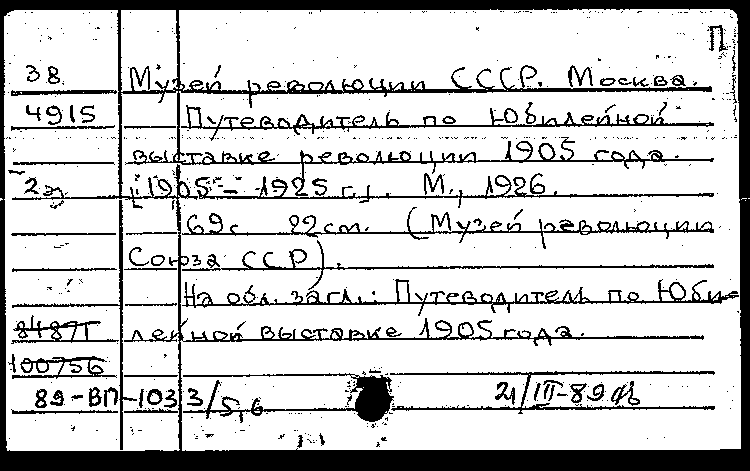 П
38 Музей революции СССР. Москва.
4915 Путеводитель по Юбилейной
выставке революции 1905 года.
2э [1905 – 1925 г.]. М., 1926.
69с 22см. (Музей революции
Союза ССР).
На обл. загл.: Путеводитель по Юби-
84871 лейной выставке 1905 года.
100756
89-ВП-1033/5,6 21/III-89